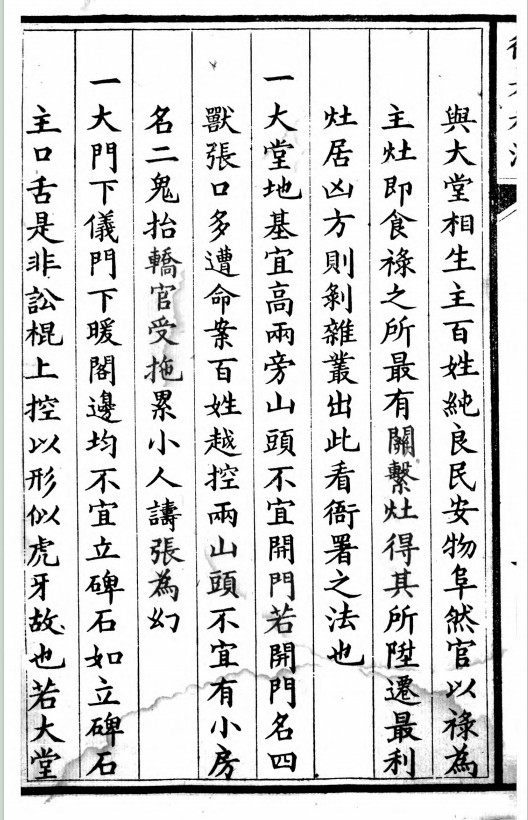 與大堂相生主百姓純良民安物阜然官以祿為
主灶即食祿之所最有關繫灶得其所陞遷最利
灶居凶方則剝雜叢出此看衙署之法也
一大堂地基宜高兩旁山頭不宜開門若開門名四
獸張口多遭命案百姓越控兩山頭不宜有小房
名二鬼抬轎官受拖累小人譸張為幻
一大門下儀門下暖閣邊均不宜立碑石如立碑石
主口舌是非訟棍上控以形似虎牙故也若大堂